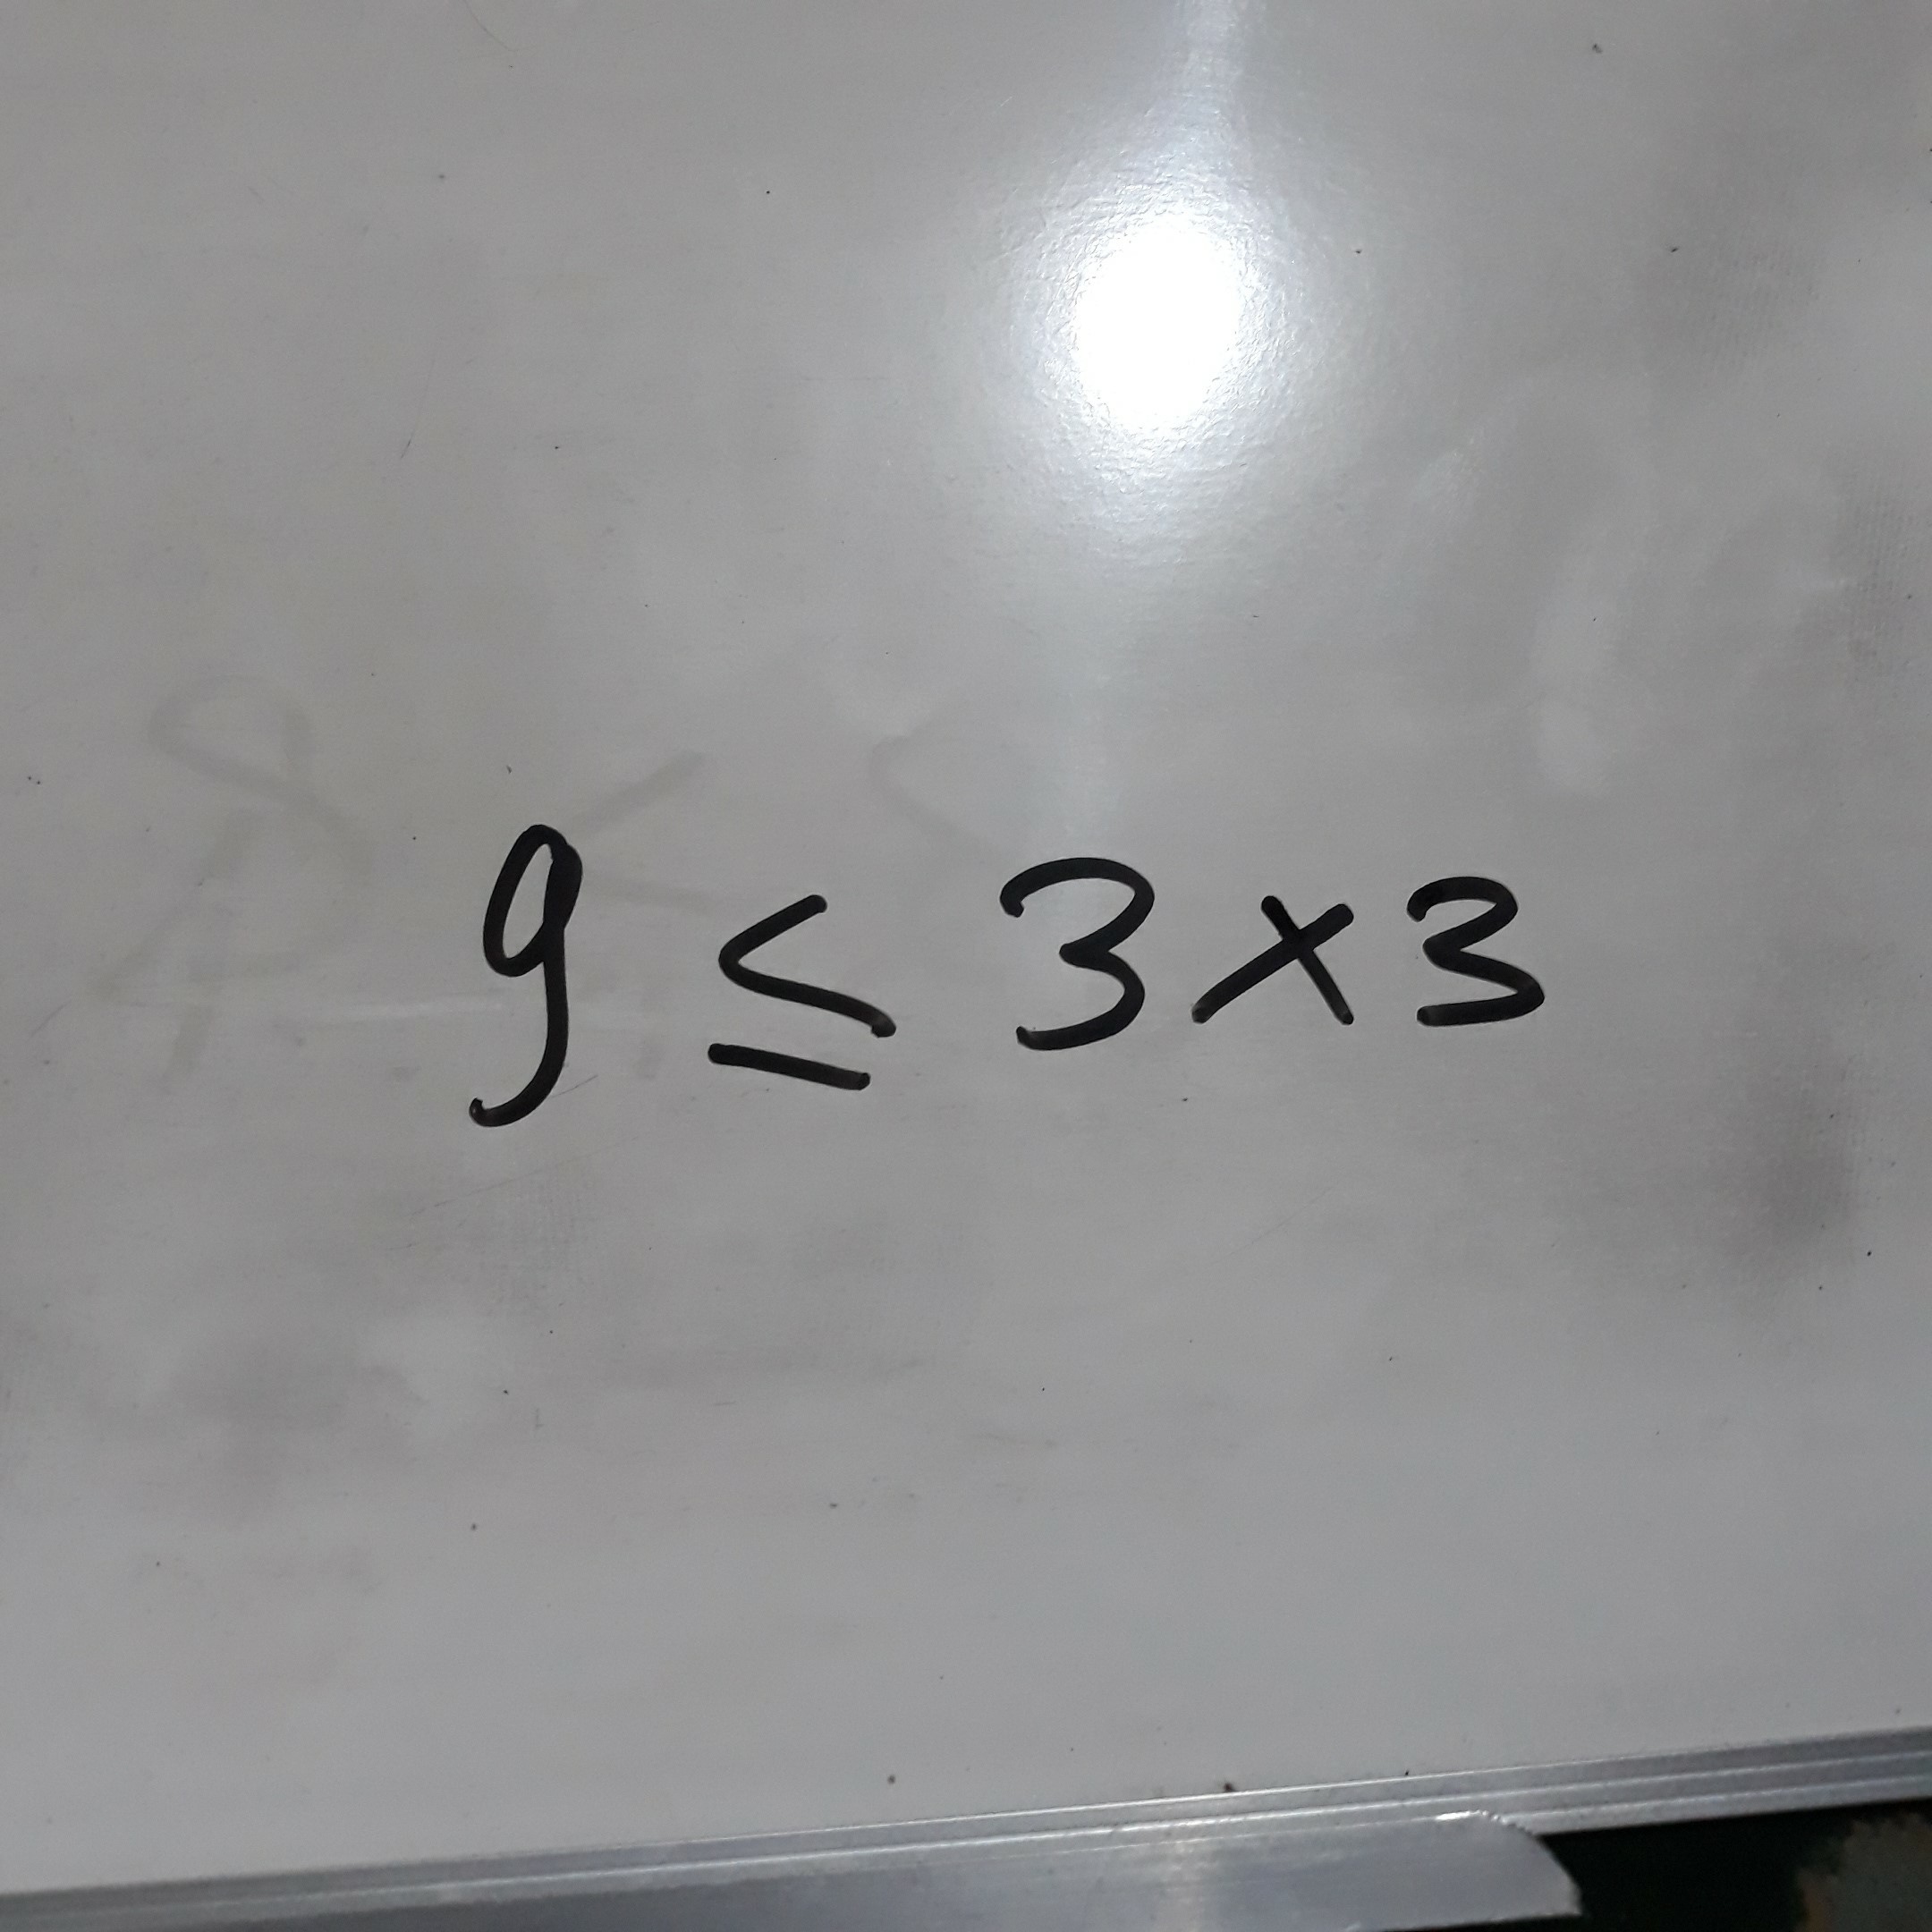 9 ≤ 3 × 3